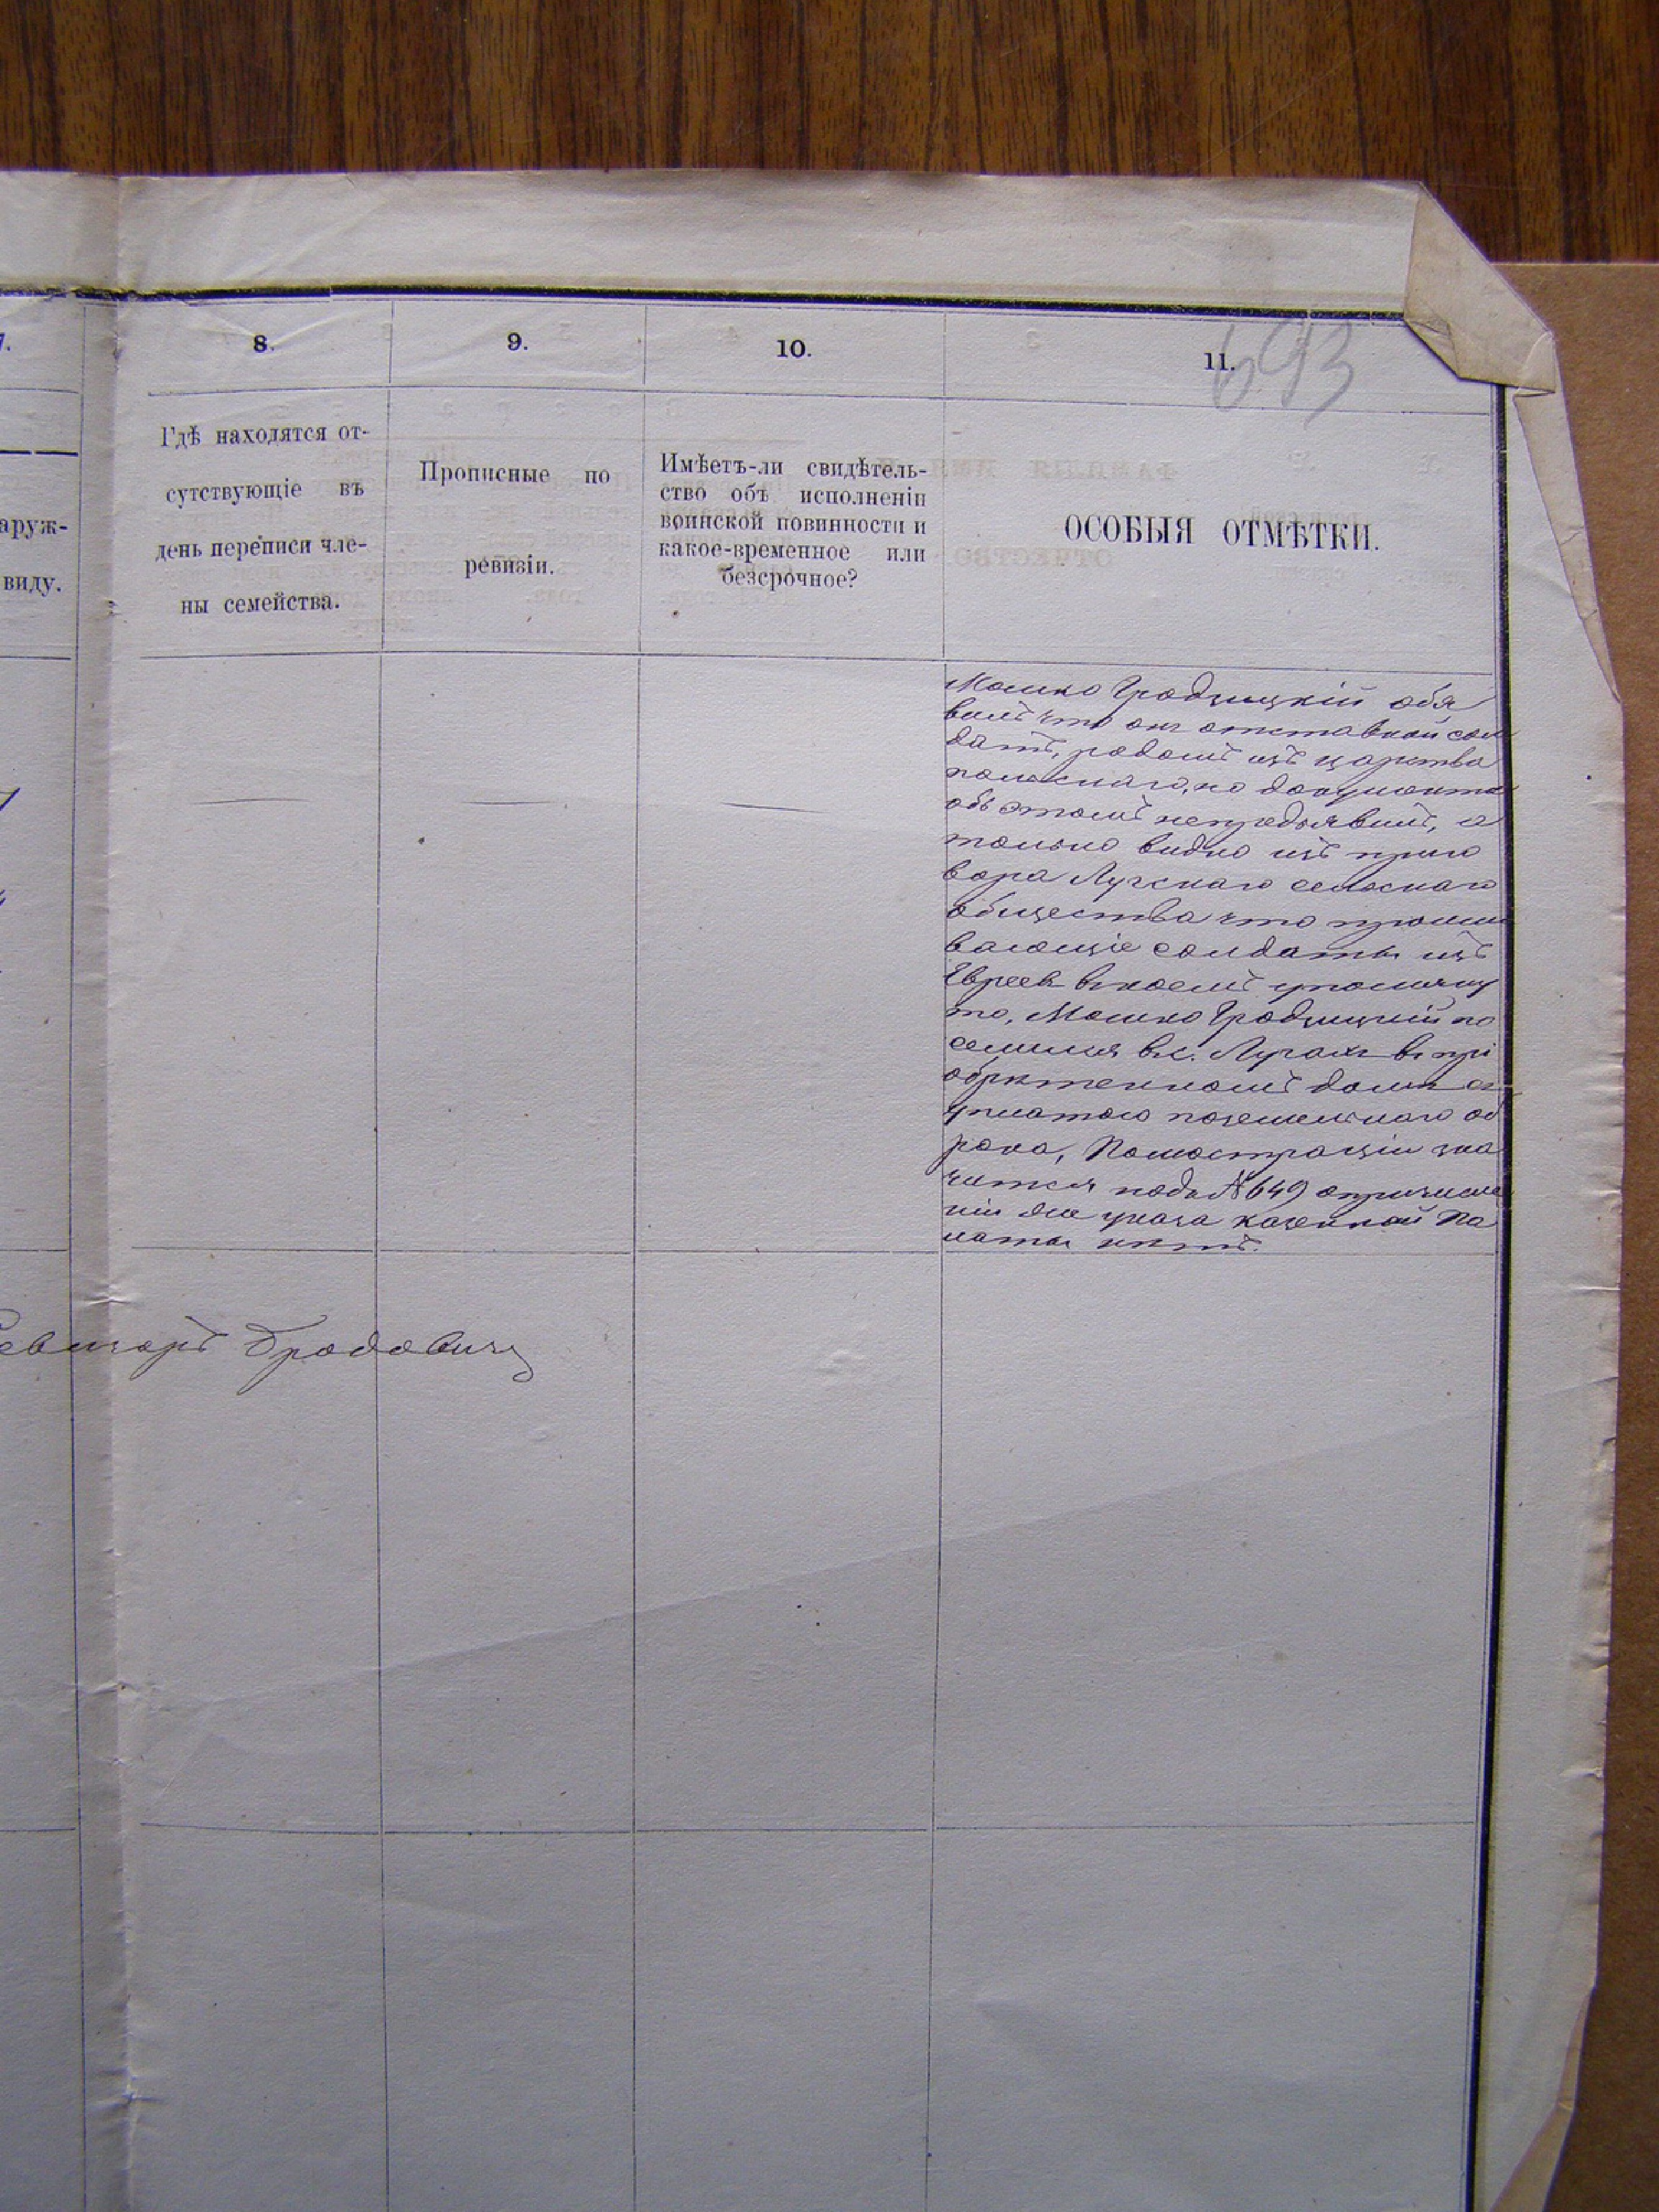 7.
8.
9.
10.
11.
693
аруж-
виду.
Гдѣ находятся от-
сутствующіе въ
день переписи чле-
ны семейства.
Прописные по
ревизіи.
Имѣетъ-ли свидѣтель-
ство объ исполненіи
воинской повинности и
какое-временное или
безсрочное?
ОСОБЫЯ ОТМѢТКИ.
Мошко Гродзицкій объя
вилъ что онъ отставной сол
датъ, родомъ изъ царства
польскаго, но документа
объ этомъ непредъявилъ, а
только видно изъ приго
вора Лучскаго сельскаго
общества что прожи
вающіе солдаты изъ
Евреевъ въ коемъ упомяну
то, Мошко Гродзицкій по
селился въ с. Лугахъ въ прі
обрѣтенномъ домѣ съ
уплатою поземельнаго об
рока, значится подъ № 649 о причисле
ніи же указа казенной Па
латы нѣтъ.
Бродовичъ